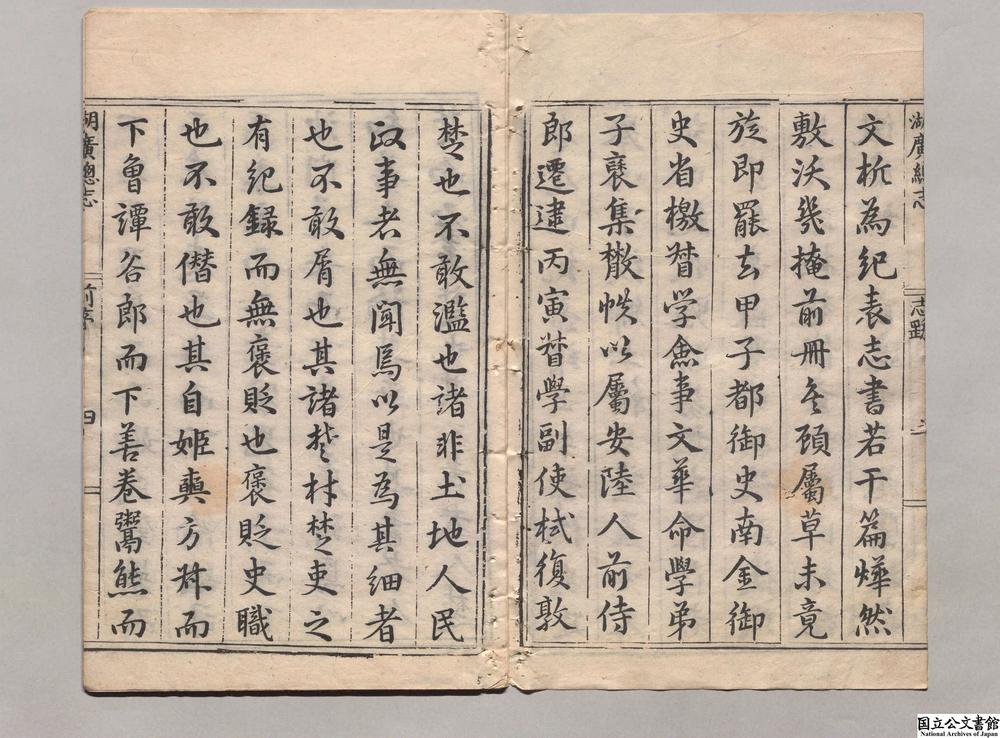 湖廣總志
志
文析為紀表志書若干篇燁然
敷沃幾掩前冊矣顧屬草未竟
旋即罷去甲子都御史南金御
史省檄督學僉事文華命學弟
子裒集散帙以屬安陸人前侍
郎遷逮丙寅督學副使栻復敦
楚也不敢濫也諸非土地人民
政事者無聞焉以是為其細者
也不敢屑也其諸楚材楚吏之
有紀録而無褒貶也褒貶史職
也不敢僭也其自姬輿方叔而
下魯譚谷郎而下善卷鬻熊而
湖廣總志
前序
四
国立公文書館
National Archives of Japan